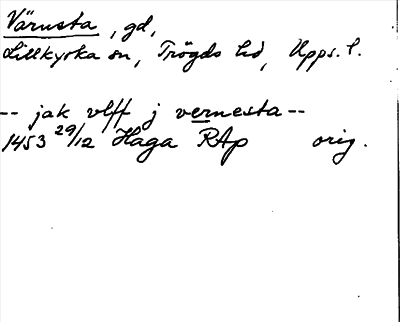 Värnsta, gd,
Lillkyrka sn, Trögds hd, Upps. l.
-- jak vlff j vernesta --
1453 29/12 Haga RAp orig.